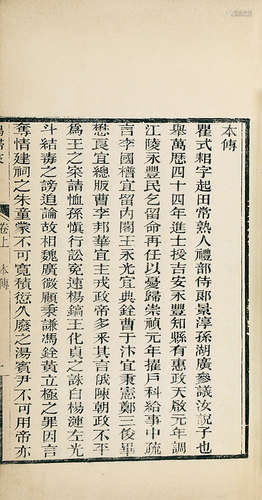 本傳
瞿式耜字起田常熟人禮部侍郎景淳孫湖廣參議汝說子也
舉萬歷四十四年進士授吉安永豐知縣有惠政天啟元年調
江陵永豐民乞留命再任以憂歸崇禎元年擢戶科給事中疏
言李國𣚴宜留內閣王永光宜典銓曹于汴宜秉憲鄭三俊畢
懋良宜總版曹李邦華宜主戎政帝多采其言俄陳朝政不平
爲王之寀請恤孫愼行訟冤速楊鎬王化貞之誅白楊漣左光
斗結毒之謗追論故相魏廣微顧秉謙馮銓黃立極之罪因言
奪情建祠之朱童蒙不可寬積愆久廢之湯賓尹不可用帝亦
卷上 本傳